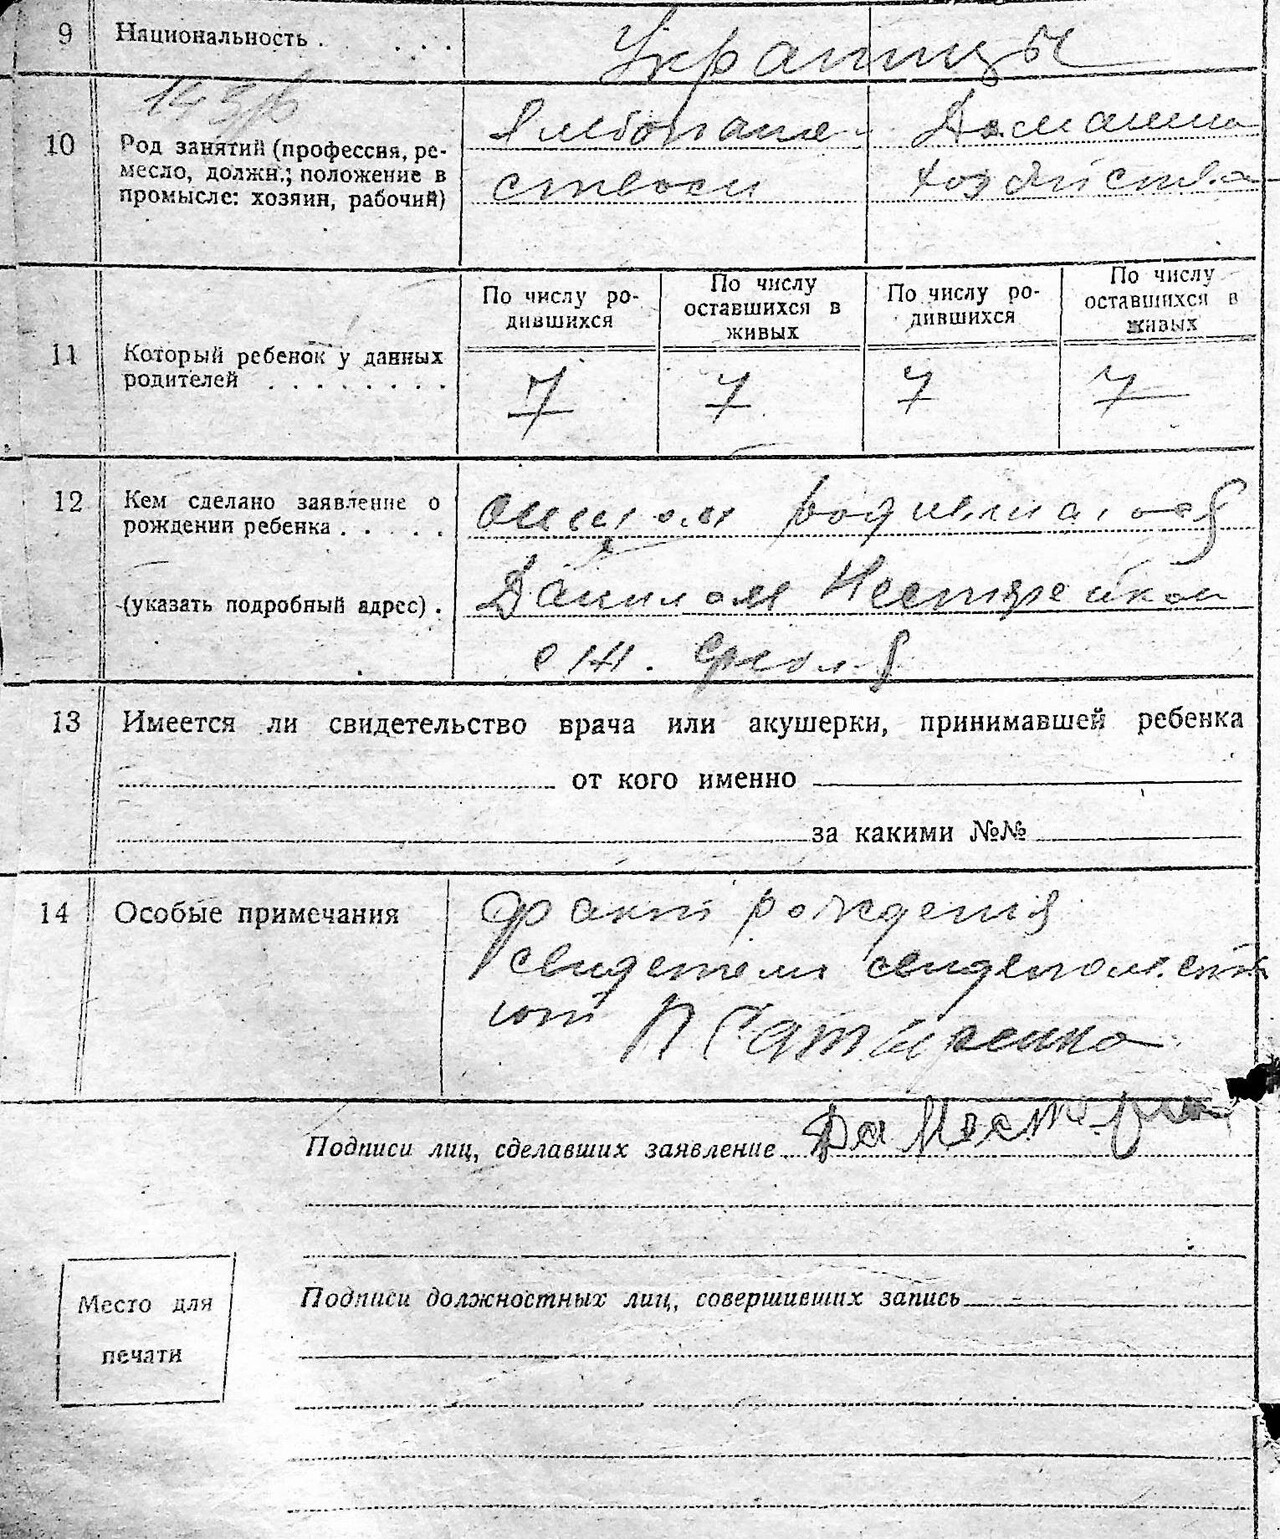 9 Национальность . . . . Украинцы
10 Род занятий (профессия, ре-
месло, должн.; положение в
промысле: хозяин, рабочий)
Хлебопаше-
ством
Домашне
хозяйства
11 Который ребенок у данных
родителей . . . . . . . .
По числу ро-
дившихся
По числу
оставшихся в
живых
По числу ро-
дившихся
По числу
оставшихся в
живых
7 7 7 7
12 Кем сделано заявление о
рождении ребенка . . . . .
(указать подробный адрес) .
отцом родившагося
Данилом
13 Имеется ли свидетельство врача или акушерки, принимавшей ребенка
от кого именно
за какими №№
14 Особые примечания
Факт рождения
свидетели
П Сатыренко
Подписи лиц, сделавших заявление
Подписи должностных лиц, совершивших запись
Место для
печати